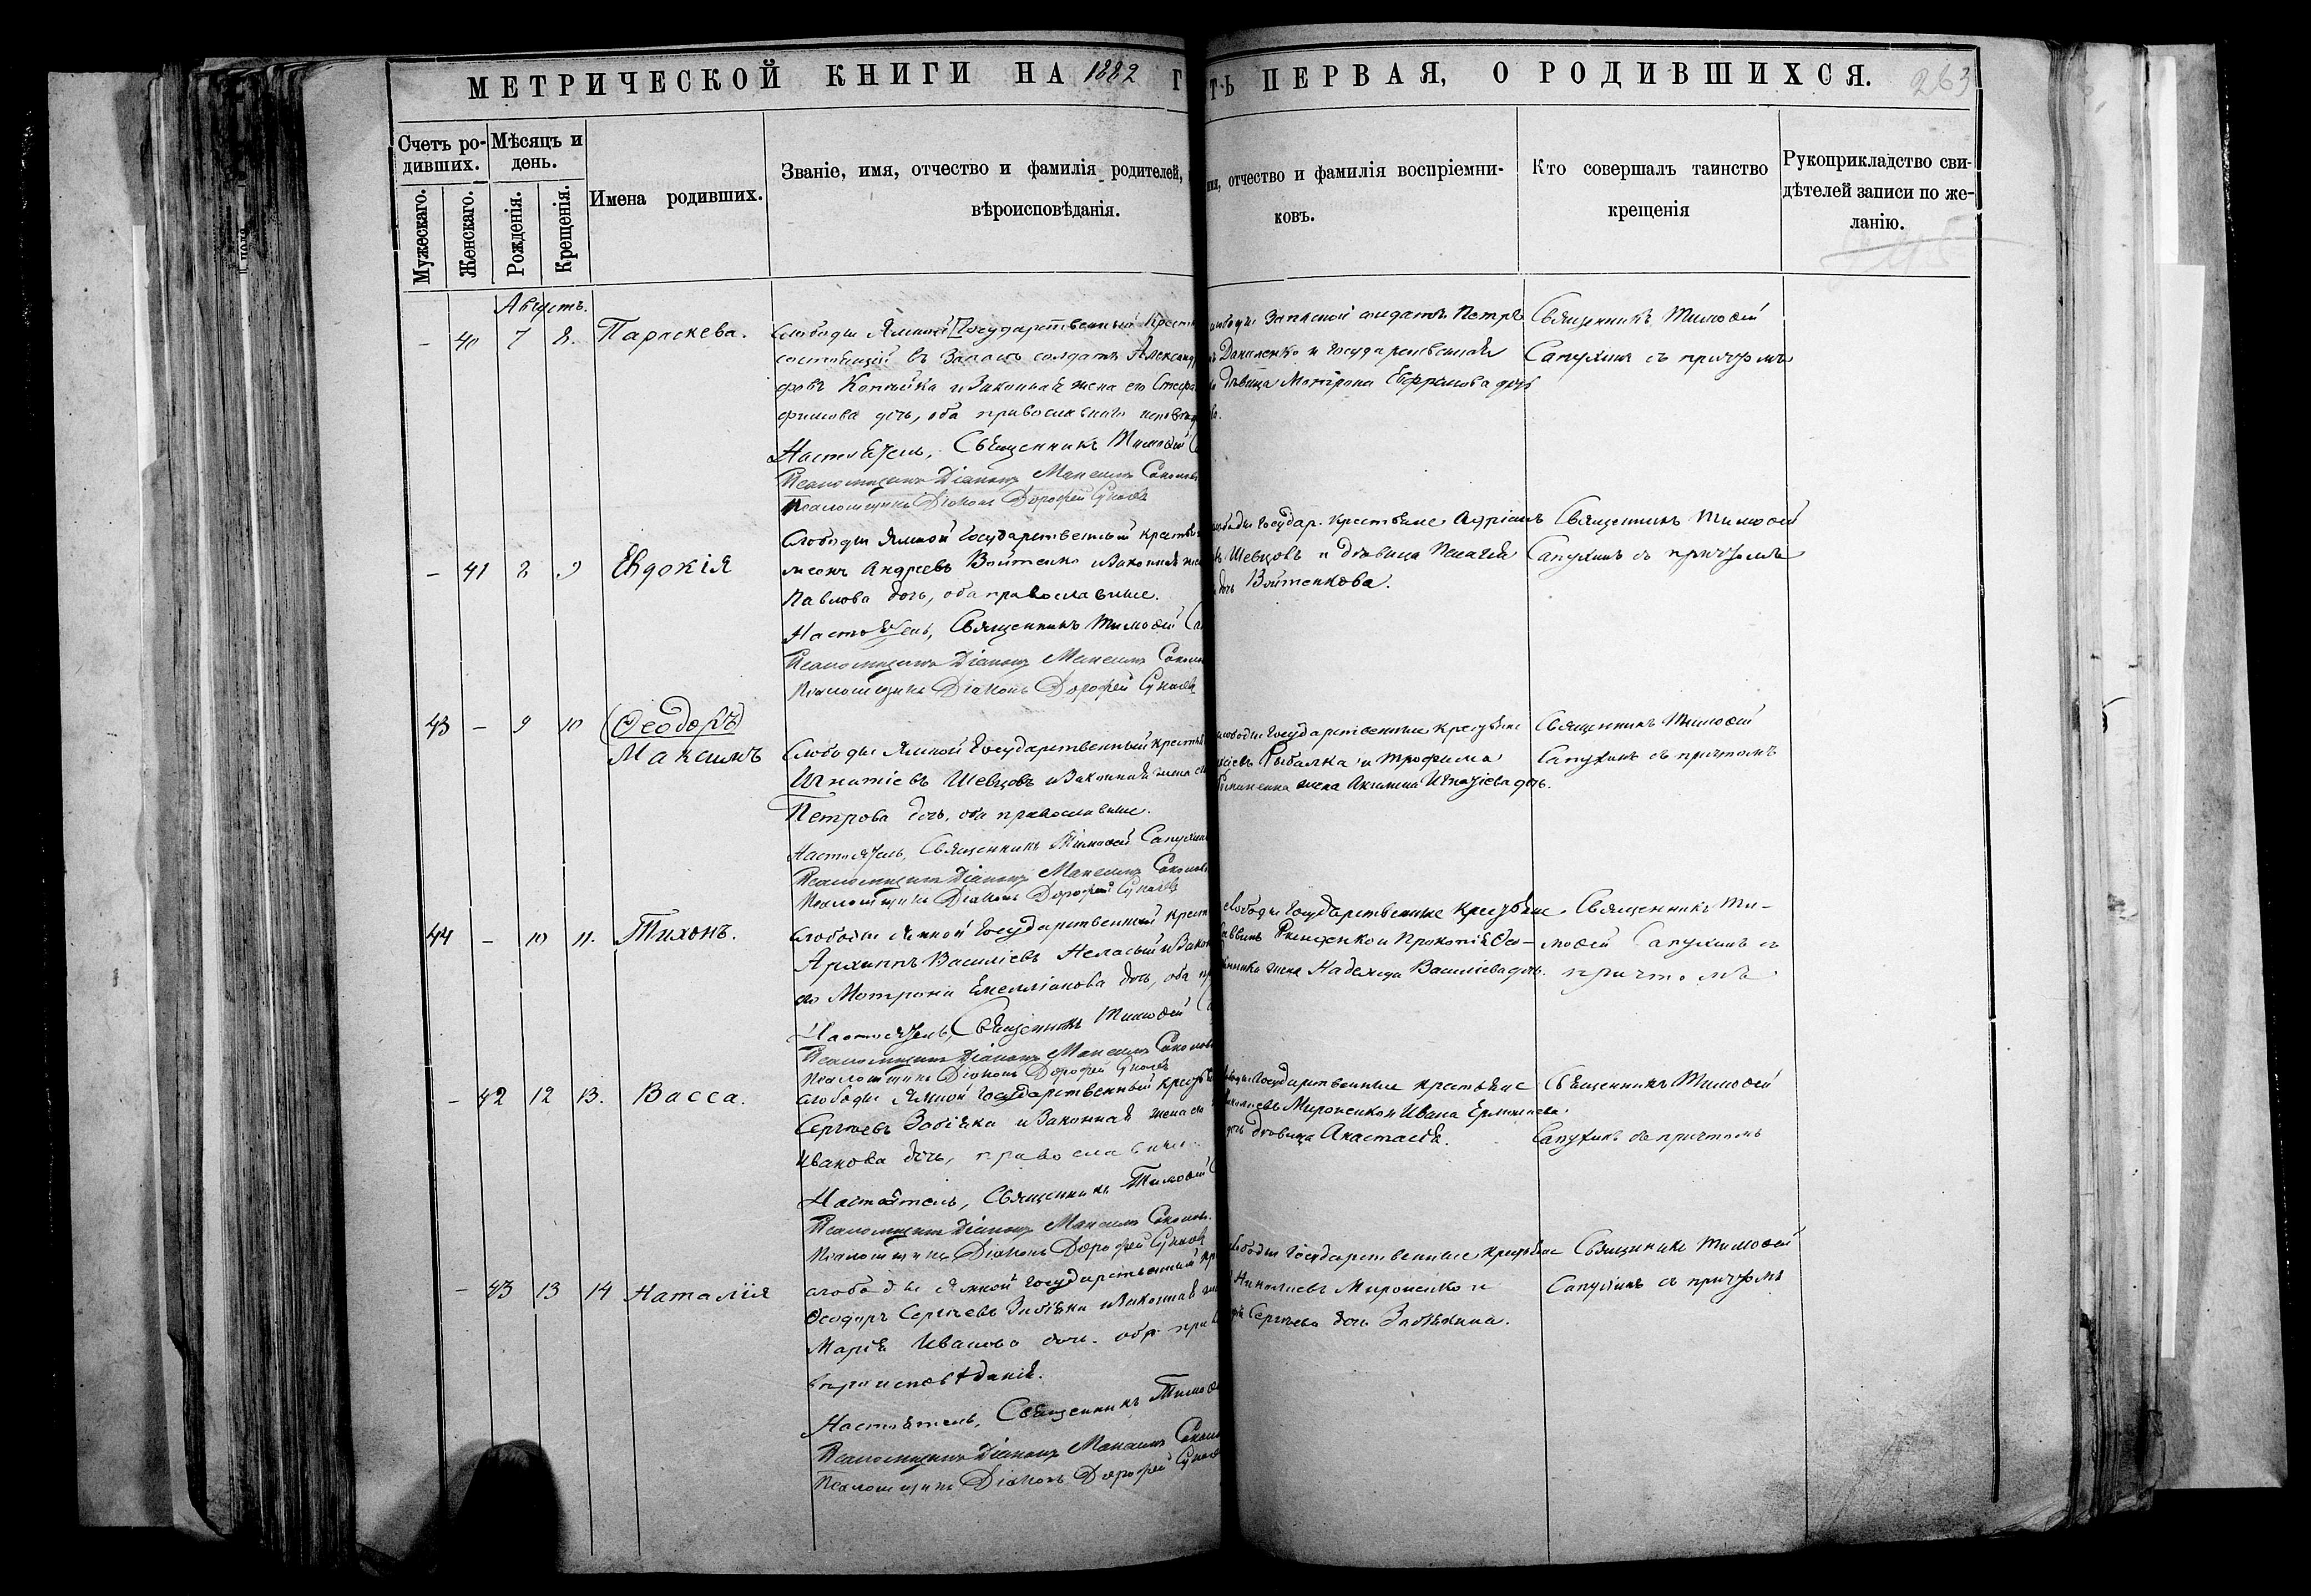 МЕТРИЧЕСКОЙ КНИГИ НА 1882 Г
ТЬ ПЕРВАЯ, О РОДИВШИХСЯ. 263
Счетъ ро-
дившихъ.
Мужескаго.
Женскаго.
Мѣсяцъ и
день.
Рожденія.
Крещенія.
Имена родившихъ.
Званіе, имя, отчество и фамилія родителей,
вѣроисповѣданія.
отчество и фамилія воспріемни-
ковъ.
Кто совершалъ таинство
крещенія
Рукоприкладство сви-
дѣтелей записи по же-
ланію.
Августъ.
- 40 7 8. Параскева.
Слободы Ямной Государственный крест
состоящій въ Запасѣ солдатъ Александ
и Законная жена его Стефа
фимова дочь, оба православнаго
Настоятель, Священникъ Тимоѳей
Псаломщикъ Діаконъ Максимъ
Псаломщикъ Діаконъ Дорофей
Запасной солдатъ Петръ
Даниленко и Государственная
дѣвица Матрона Ефримова дочь
Священникъ Тимоѳей
Сапухинъ съ причтомъ
- 41 8 9 Евдокія
Слободы Ямной Государственный крестья
Андреевъ Войтенко и Законная
Павлова дочь, оба православные.
Настоятель, Священникъ Тимоѳей
Псаломщикъ Діаконъ Максимъ
Псаломщикъ Діаконъ Дорофей
Государ. крестьяне Адріанъ
Шевцовъ и дѣвица Пелагія
дочь Войтенкова.
Священникъ Тимоѳей
Сапухинъ съ причтомъ
43 - 9 10 (Ѳеодоръ)
Максимъ
Слободы Ямной Государственный крестья
Игнатіевъ Шевцовъ и Законная жена
Петрова дочь, оба православные.
Настоятель, Священникъ Тимоѳей Сапухинъ
Псаломщикъ Діаконъ Максимъ
Псаломщикъ Діаконъ Дорофей
Государственные крестьяне
Рыбалка и Трофима
жена Акилина Игнатіева дочь.
Священникъ Тимоѳей
Сапухинъ съ причтомъ
44 - 10 11. Тихонъ.
Слободы Ямной Государственный крест
Архиппъ Василіевъ и Закон
его Матрона Емелліанова дочь, оба пр
Настоятель, Священникъ Тимоѳей
Псаломщикъ Діаконъ Максимъ
Псаломщикъ Діаконъ Дорофей
слободы Государственные крестьяне
и Прокопія
жена Надежда Василіева дочь.
Священникъ Ти-
моѳей Сапухинъ съ
причтомъ
- 42 12 13. Васса.
слободы Ямной Государственный крестья
Сергѣевъ Забіяка и Законная жена его
Иванова дочь, православные
Настоятель, Священникъ Тимоѳей
Псаломщикъ Діаконъ Максимъ
Псаломщикъ Діаконъ Дорофей
Государственные крестьяне
Мироненко и Ивана
дочь дѣвица Анастасія.
Священникъ Тимоѳей
Сапухинъ съ причтомъ
- 43 13 14 Наталія
слободы Ямной Государственный кр
Ѳеодоръ Сергѣевъ Забіяка и Законная
Марія Иванова дочь. оба пра
вѣроисповѣданія.
Настоятель, Священникъ Тимоѳ
Псаломщикъ Діаконъ Максимъ
Псаломщикъ Діаконъ Дорофей
Государственные крестьяне
Мироненко и
Сергѣева дочь Забіякина.
Священникъ Тимоѳей
Сапухинъ съ причтомъ